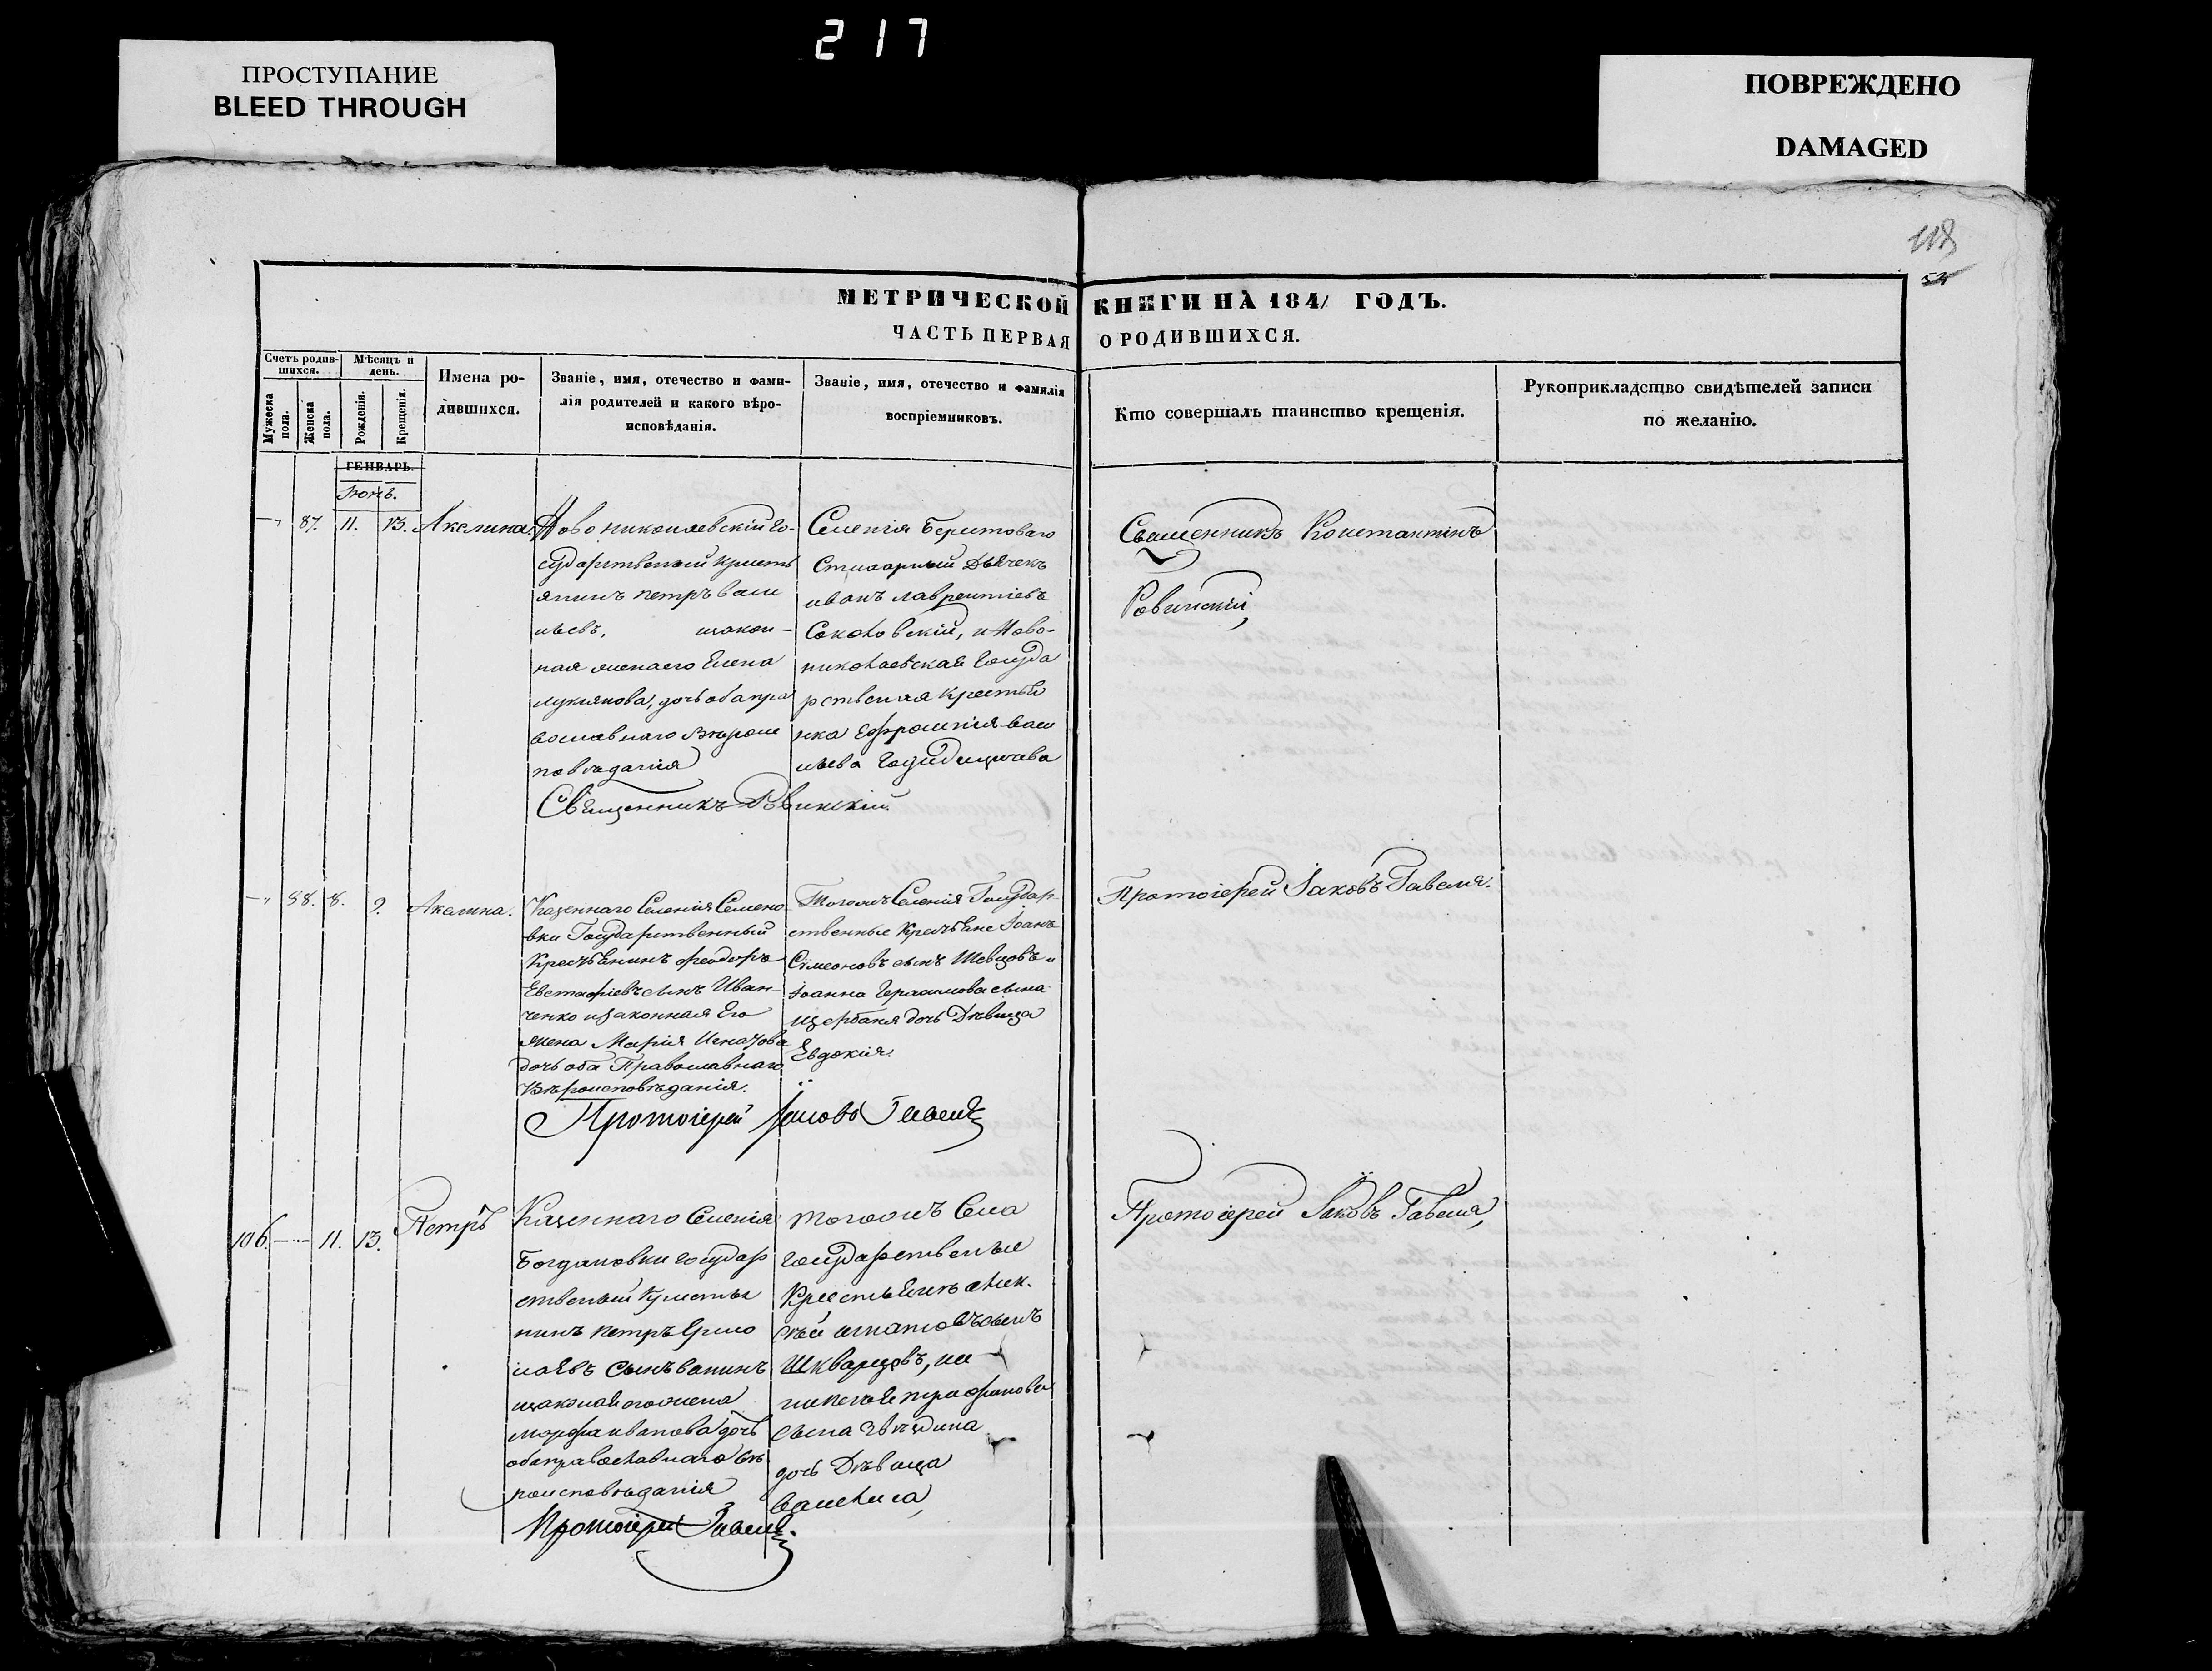 217
ПРОСТУПАНИЕ
BLEED THROUGH
ПОВРЕЖДЕНО
DAMAGED
118
МЕТРИЧЕСКОЙ КНИГИ НА 184/ ГОДЪ.
ЧАСТЬ ПЕРВАЯ О РОДИВШИХСЯ.
Счетъ родив-
шихся.
Мужеска пола.
Женска пола.
Мѣсяцъ и
день.
Рожденія.
Крещенія.
Имена ро-
дившихся.
Званіе, имя, отечество и фами-
лія родителей и какого вѣро-
исповѣданія.
Званіе, имя, отечество и фамилія
воспріемниковъ.
Кто совершалъ таинство крещенія.
Рукоприкладство свидѣтелей записи
по желанію.
ГЕНВАРЬ.
Іюнь.
87. 11. 13. Акелина.
Ново николаевскій го-
сударственный кресть
янинъ петръ васи
льевъ, изакон-
ная женаего Елена
лукянова, дочь оба пра
вославнаго вѣроис
повѣданія
Священникъ Ровинскій
Селенія Берестоваго
Стихарный Дьячекъ
иванъ лаврентіевъ
Соколовскій, и Ново-
николаевская Госуда
рственная крестья
нка Ефросинія васи
льева
Священникъ Константинъ
Ровинскій,
88. 8. 9. Акелина.
Казеннаго Селенія Семено
вки Государственный
Крестьянинъ Феодоръ
Евстафіевъ сынъ Иван-
ченко изаконная Его
жена Марія Игнатова
дочь оба Православнаго
Вѣроисповѣданія.
Протоіерей Іаковъ Гавеля
Тогожъ Селенія Государ-
ственные Крестьяне Іоаннъ
Симеоновъ сынъ Шевцовъ и
Іоанна Герасимова сына
щербаня дочь Дѣвица
Евдокія.
Протоіерей Іаковъ Гавеля.
106. 11. 13. Петръ
Казеннаго Селенія
Богдановки государ
ственый Крестья
нинъ петръ Ермо
лаевъ сынъ ванинъ
изаконая его жена
марфа иванова дочь
оба православнаго вѣ
роисповѣданія
Протоіерей Гавеля.
тогожъ Села
Государственые
Крестьянинъ алек-
сѣй игнатовъ сынъ
Шкварцовъ, и
трафимова
сына
дочь Дѣвица
василиса,
Протоіерей Іаковъ Гавеля,